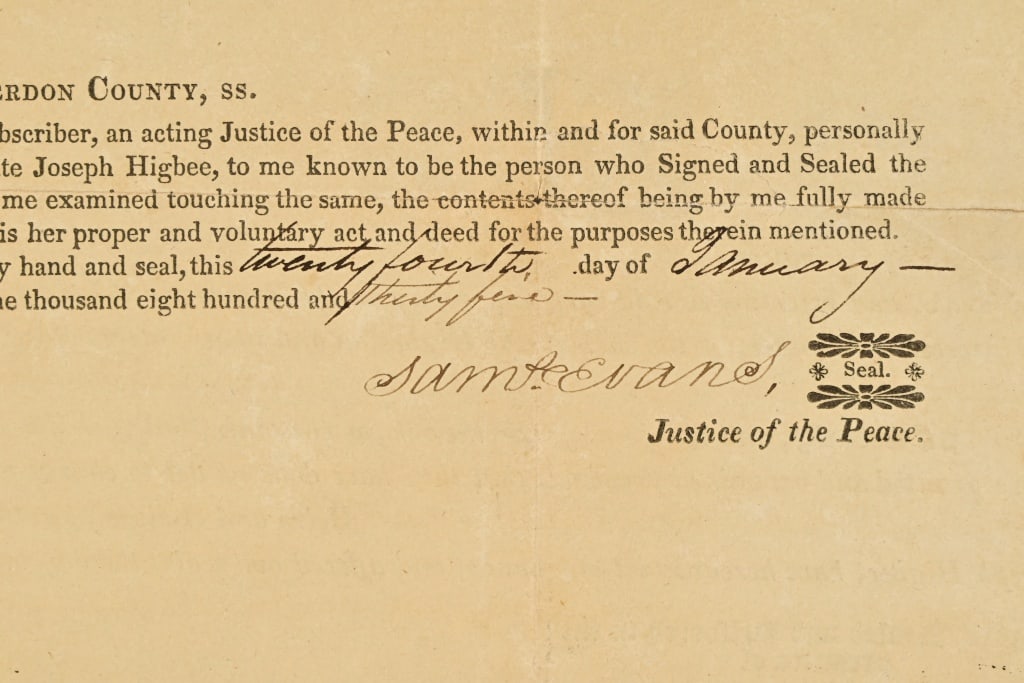 ERDON COUNTY, SS.
bscriber, an acting Justice of the Peace, within and for said County, personally
te Joseph Higbee, to me known to be the person who Signed and Sealed the
me examined touching the same, the contents thereof being by me fully made
is her proper and voluntary act and deed for the purposes therein mentioned.
y hand and seal, this twenty fourth, day of January —
ne thousand eight hundred and thirty five —
Saml. Evans, Seal.
Justice of the Peace.